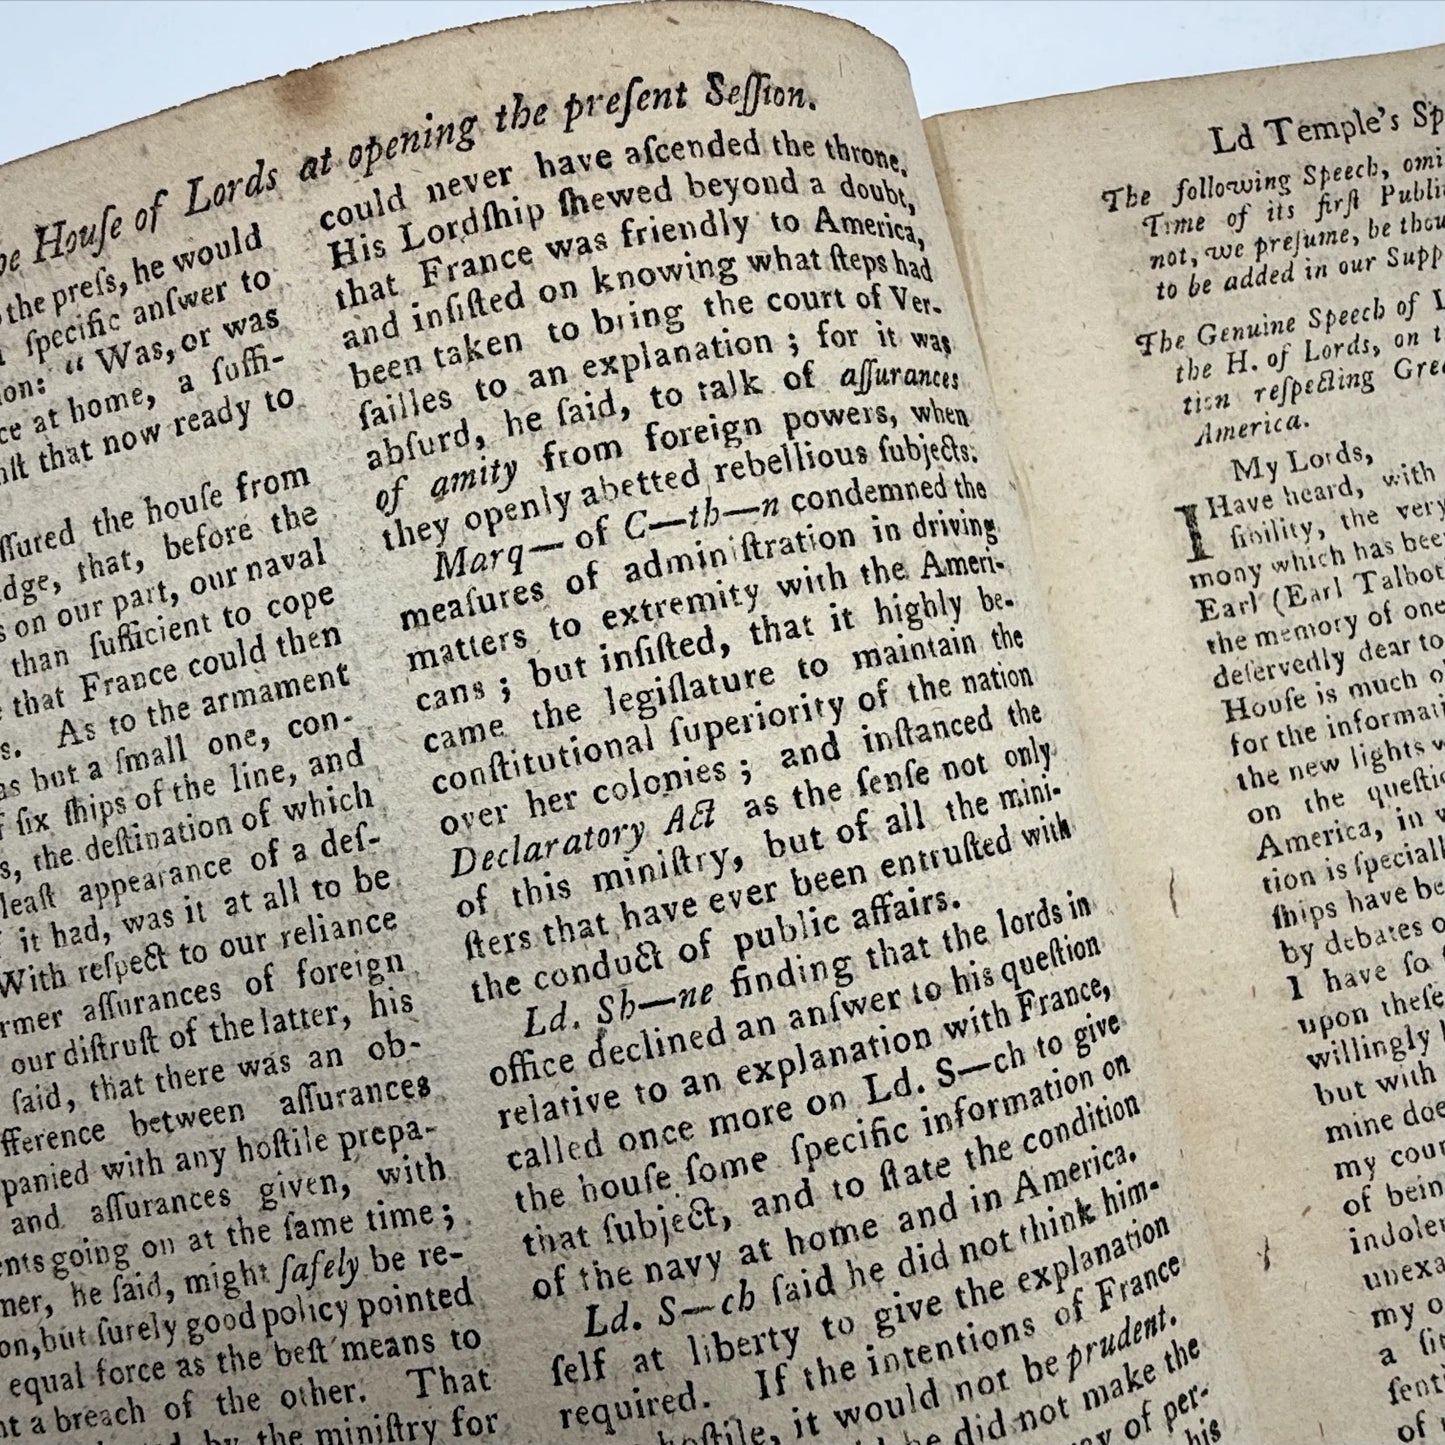 he Houſe of Lords at opening the preſent Seſſion.
the preſs, he would
ſpecific anſwer to
ion: “ Was, or was
ce at home, a ſuffi-
nſt that now ready to
ſſured the houſe from
dge, that, before the
s on our part, our naval
than ſufficient to cope
that France could then
s. As to the armament
as but a ſmall one, con-
f ſix ſhips of the line, and
s, the deſtination of which
leaſt appearance of a deſ-
it had, was it at all to be
With reſpect to our reliance
rmer aſſurances of foreign
our diſtruſt of the latter, his
ſaid, that there was an ob-
fference between aſſurances
panied with any hoſtile prepa-
and aſſurances given, with
ents going on at the ſame time;
mer, he ſaid, might ſafely be re-
on, but ſurely good policy pointed
equal force as the beſt means to
nt a breach of the other. That
by the miniſtry for
could never have aſcended the throne.
His Lordſhip ſhewed beyond a doubt,
that France was friendly to America,
and inſiſted on knowing what ſteps had
been taken to bring the court of Ver-
ſailles to an explanation; for it was
abſurd, he ſaid, to talk of aſſurances
of amity from foreign powers, when
they openly abetted rebellious ſubjects.
Marq— of C—th—n condemned the
meaſures of adminiſtration in driving
matters to extremity with the Ameri-
cans; but inſiſted, that it highly be-
came the legiſlature to maintain the
conſtitutional ſuperiority of the nation
over her colonies; and inſtanced the
Declaratory Act as the ſenſe not only
of this miniſtry, but of all the mini-
ſters that have ever been entruſted with
the conduct of public affairs.
Ld. Sh—ne finding that the lords in
office declined an anſwer to his queſtion
relative to an explanation with France,
called once more on Ld. S—ch to give
the houſe ſome ſpecific information on
that ſubject, and to ſtate the condition
of the navy at home and in America.
Ld. S—ch ſaid he did not think him-
ſelf at liberty to give the explanation
required. If the intentions of France
hoſtile, it would not be prudent.
he did not make the
of per-
his
Ld Temple's Sp
The following Speech, omi
Time of its firſt Publi
not, we preſume, be thou
to be added in our Supp
The Genuine Speech of L
the H. of Lords, on t
tion reſpecting Gre
America.
My Lords,
I Have heard, with
ſibility, the very
mony which has bee
Earl (Earl Talbot
the memory of one
deſervedly dear to
Houſe is much o
for the informati
the new lights w
on the queſti
America, in w
tion is ſpeciall
ſhips have be
by debates o
I have ſo
upon theſe
willingly
but with
mine doe
my cour
of bein
indolen
unexa
my o
a ſi
ſenti
of